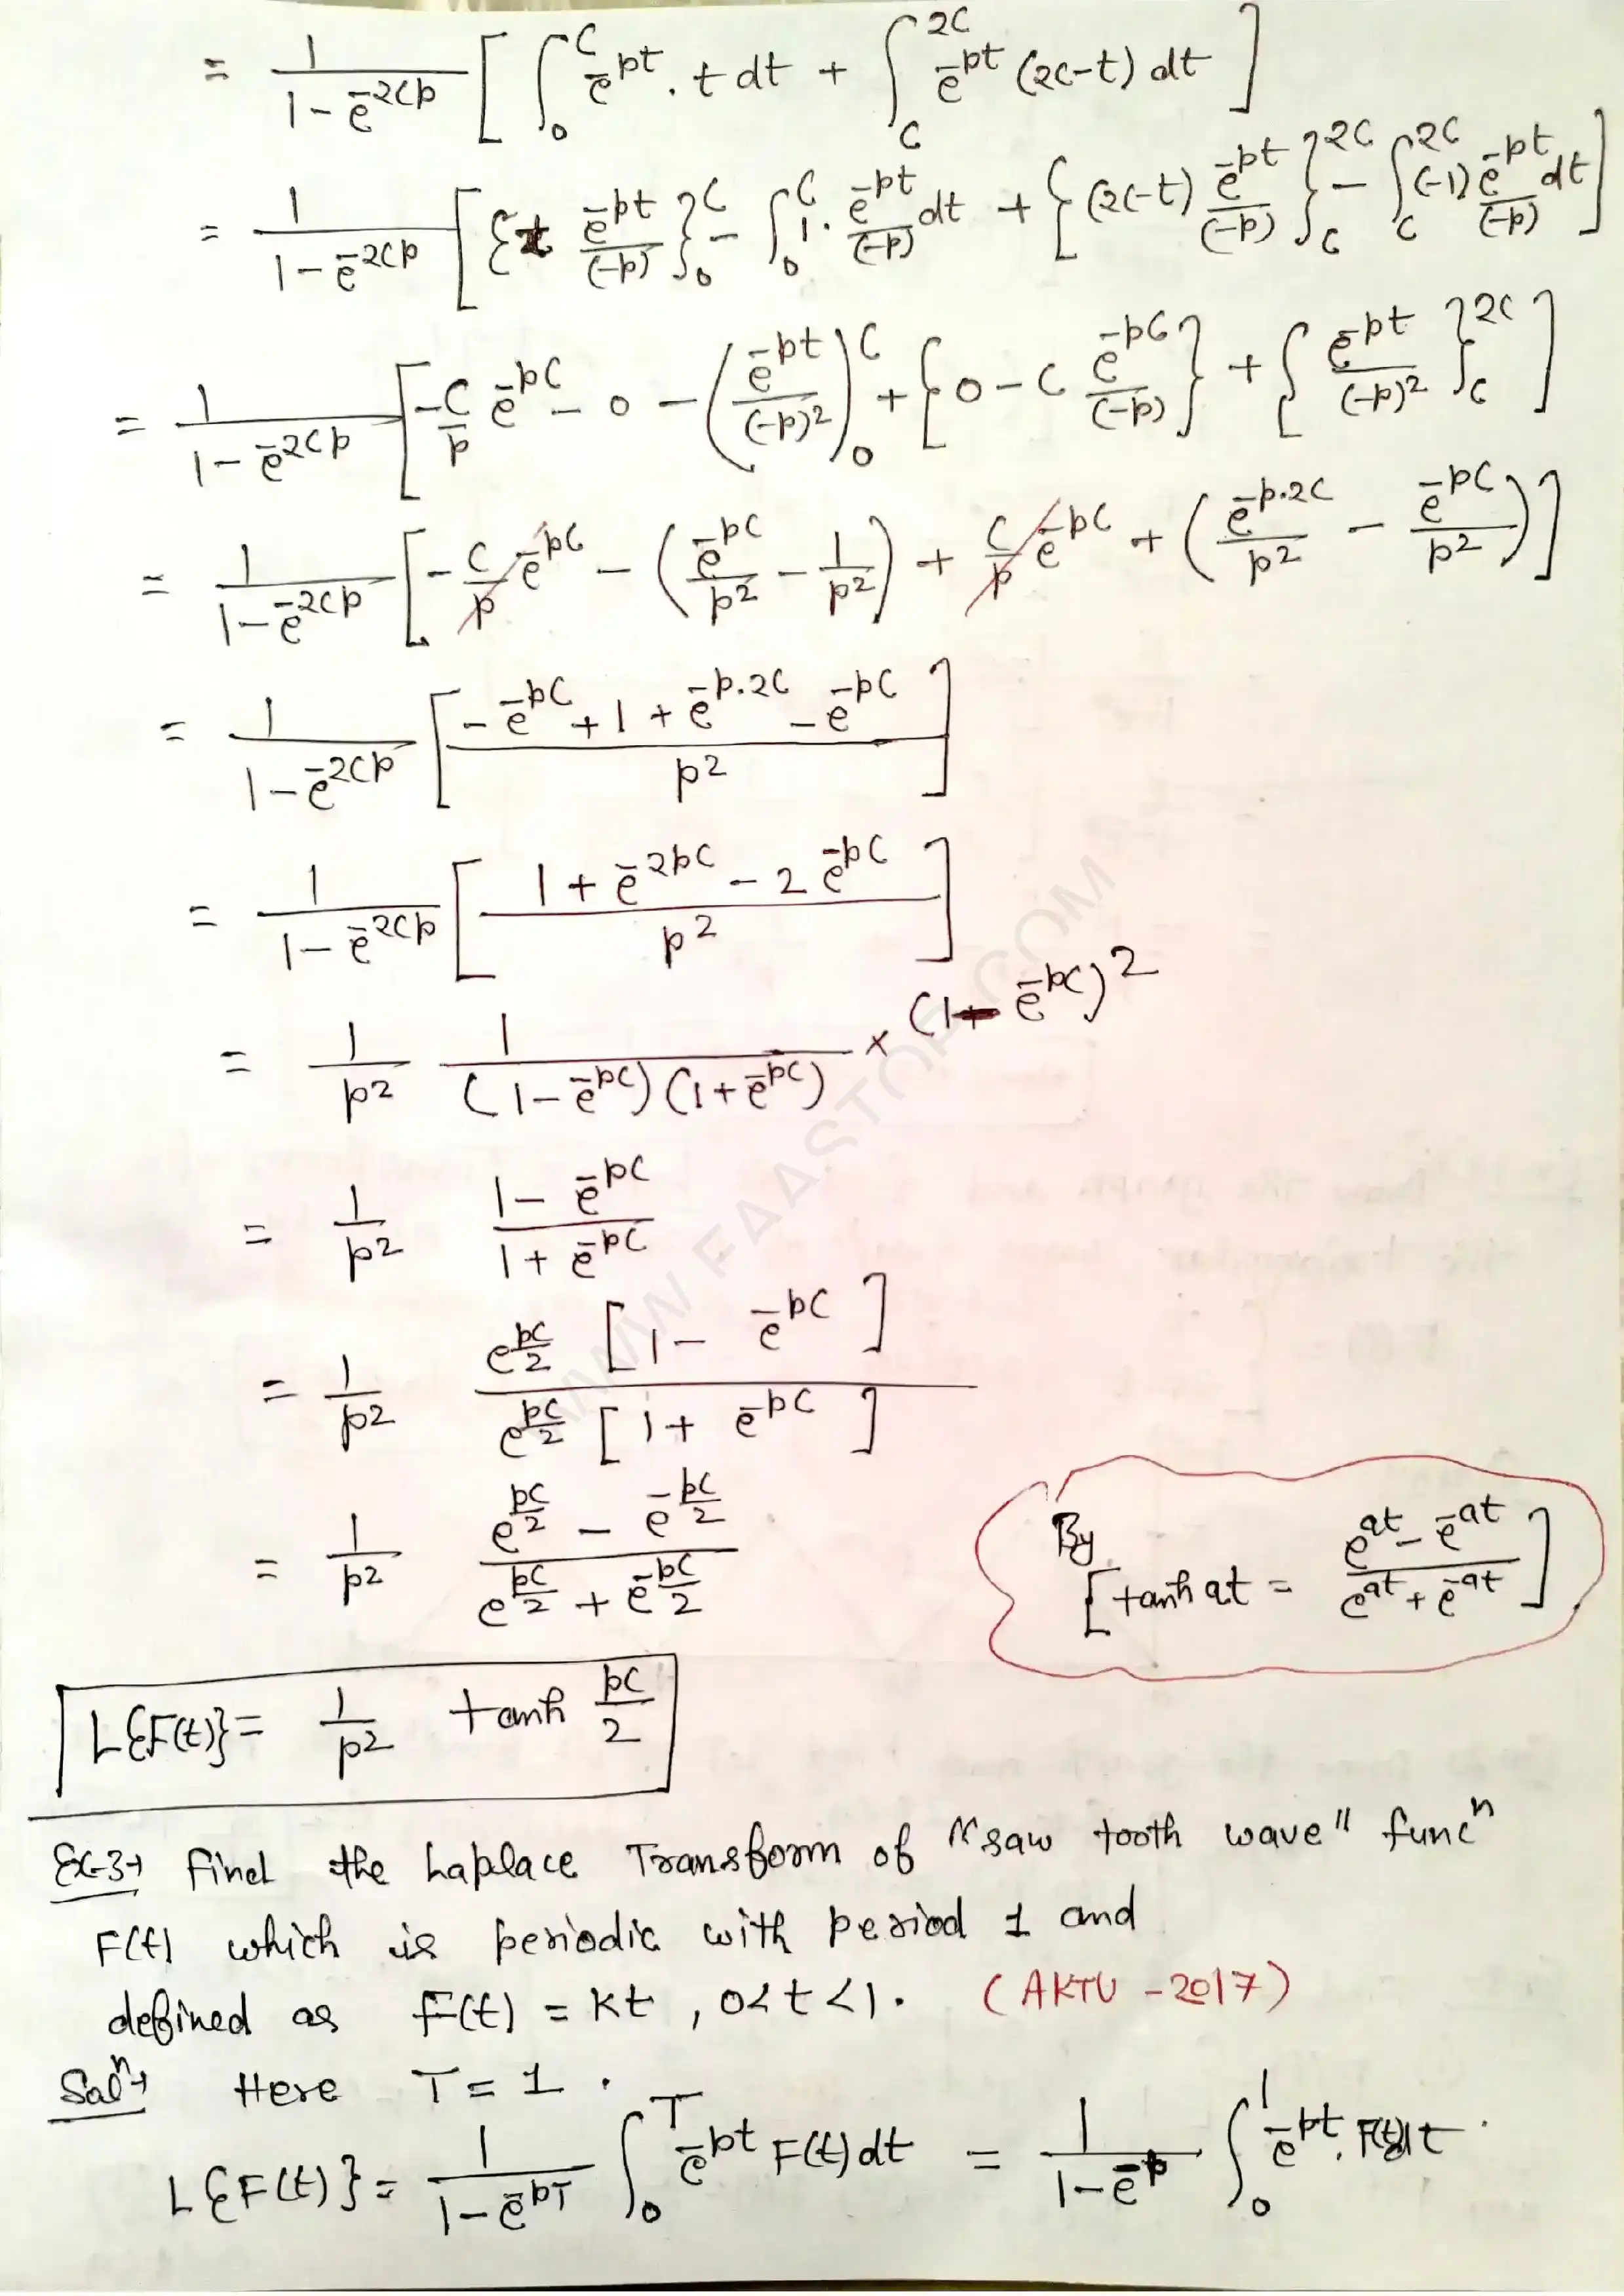 = 1/(1-e^-2cp) [ ∫_0^c e^-pt . t dt + ∫_c^2c e^-pt (2c-t) dt ]
= 1/(1-e^-2cp) [ {t e^-pt/(-p)}_0^c - ∫_0^c 1. e^-pt/(-p) dt + {(2c-t) e^-pt/(-p)}_c^2c - ∫_c^2c (-1) e^-pt/(-p) dt ]
= 1/(1-e^-2cp) [ -c/p e^-pc - 0 - (e^-pt/(-p)^2)_0^c + {0 - c e^-pc/(-p)} + {e^-pt/(-p)^2}_c^2c ]
= 1/(1-e^-2cp) [ -c/p e^-pc - (e^-pc/p^2 - 1/p^2) + c/p e^-pc + (e^-p.2c/p^2 - e^-pc/p^2) ]
= 1/(1-e^-2cp) [ (-e^-pc + 1 + e^-p.2c - e^-pc)/p^2 ]
= 1/(1-e^-2cp) [ (1 + e^-2pc - 2 e^-pc)/p^2 ]
= 1/p^2 1/((1-e^-pc)(1+e^-pc)) × (1 - e^-pc)^2
= 1/p^2 (1 - e^-pc)/(1 + e^-pc)
= 1/p^2 e^(pc/2) [1 - e^-pc] / e^(pc/2) [1 + e^-pc]
= 1/p^2 (e^(pc/2) - e^(-pc/2))/(e^(pc/2) + e^(-pc/2))
By
[tanh at = (e^at - e^-at)/(e^at + e^-at)]
L{F(t)} = 1/p^2 tanh pc/2
Ex-3→ Find the Laplace Transform of "saw tooth wave" func^n
F(t) which is periodic with period 1 and
defined as F(t) = kt , 0<t<1. (AKTU - 2017)
Sol^n→ Here T = 1 .
L{F(t)} = 1/(1-e^-pT) ∫_0^T e^-pt F(t) dt = 1/(1-e^-p) ∫_0^1 e^-pt . F(t) dt .
WWW.FAASTOP.COM